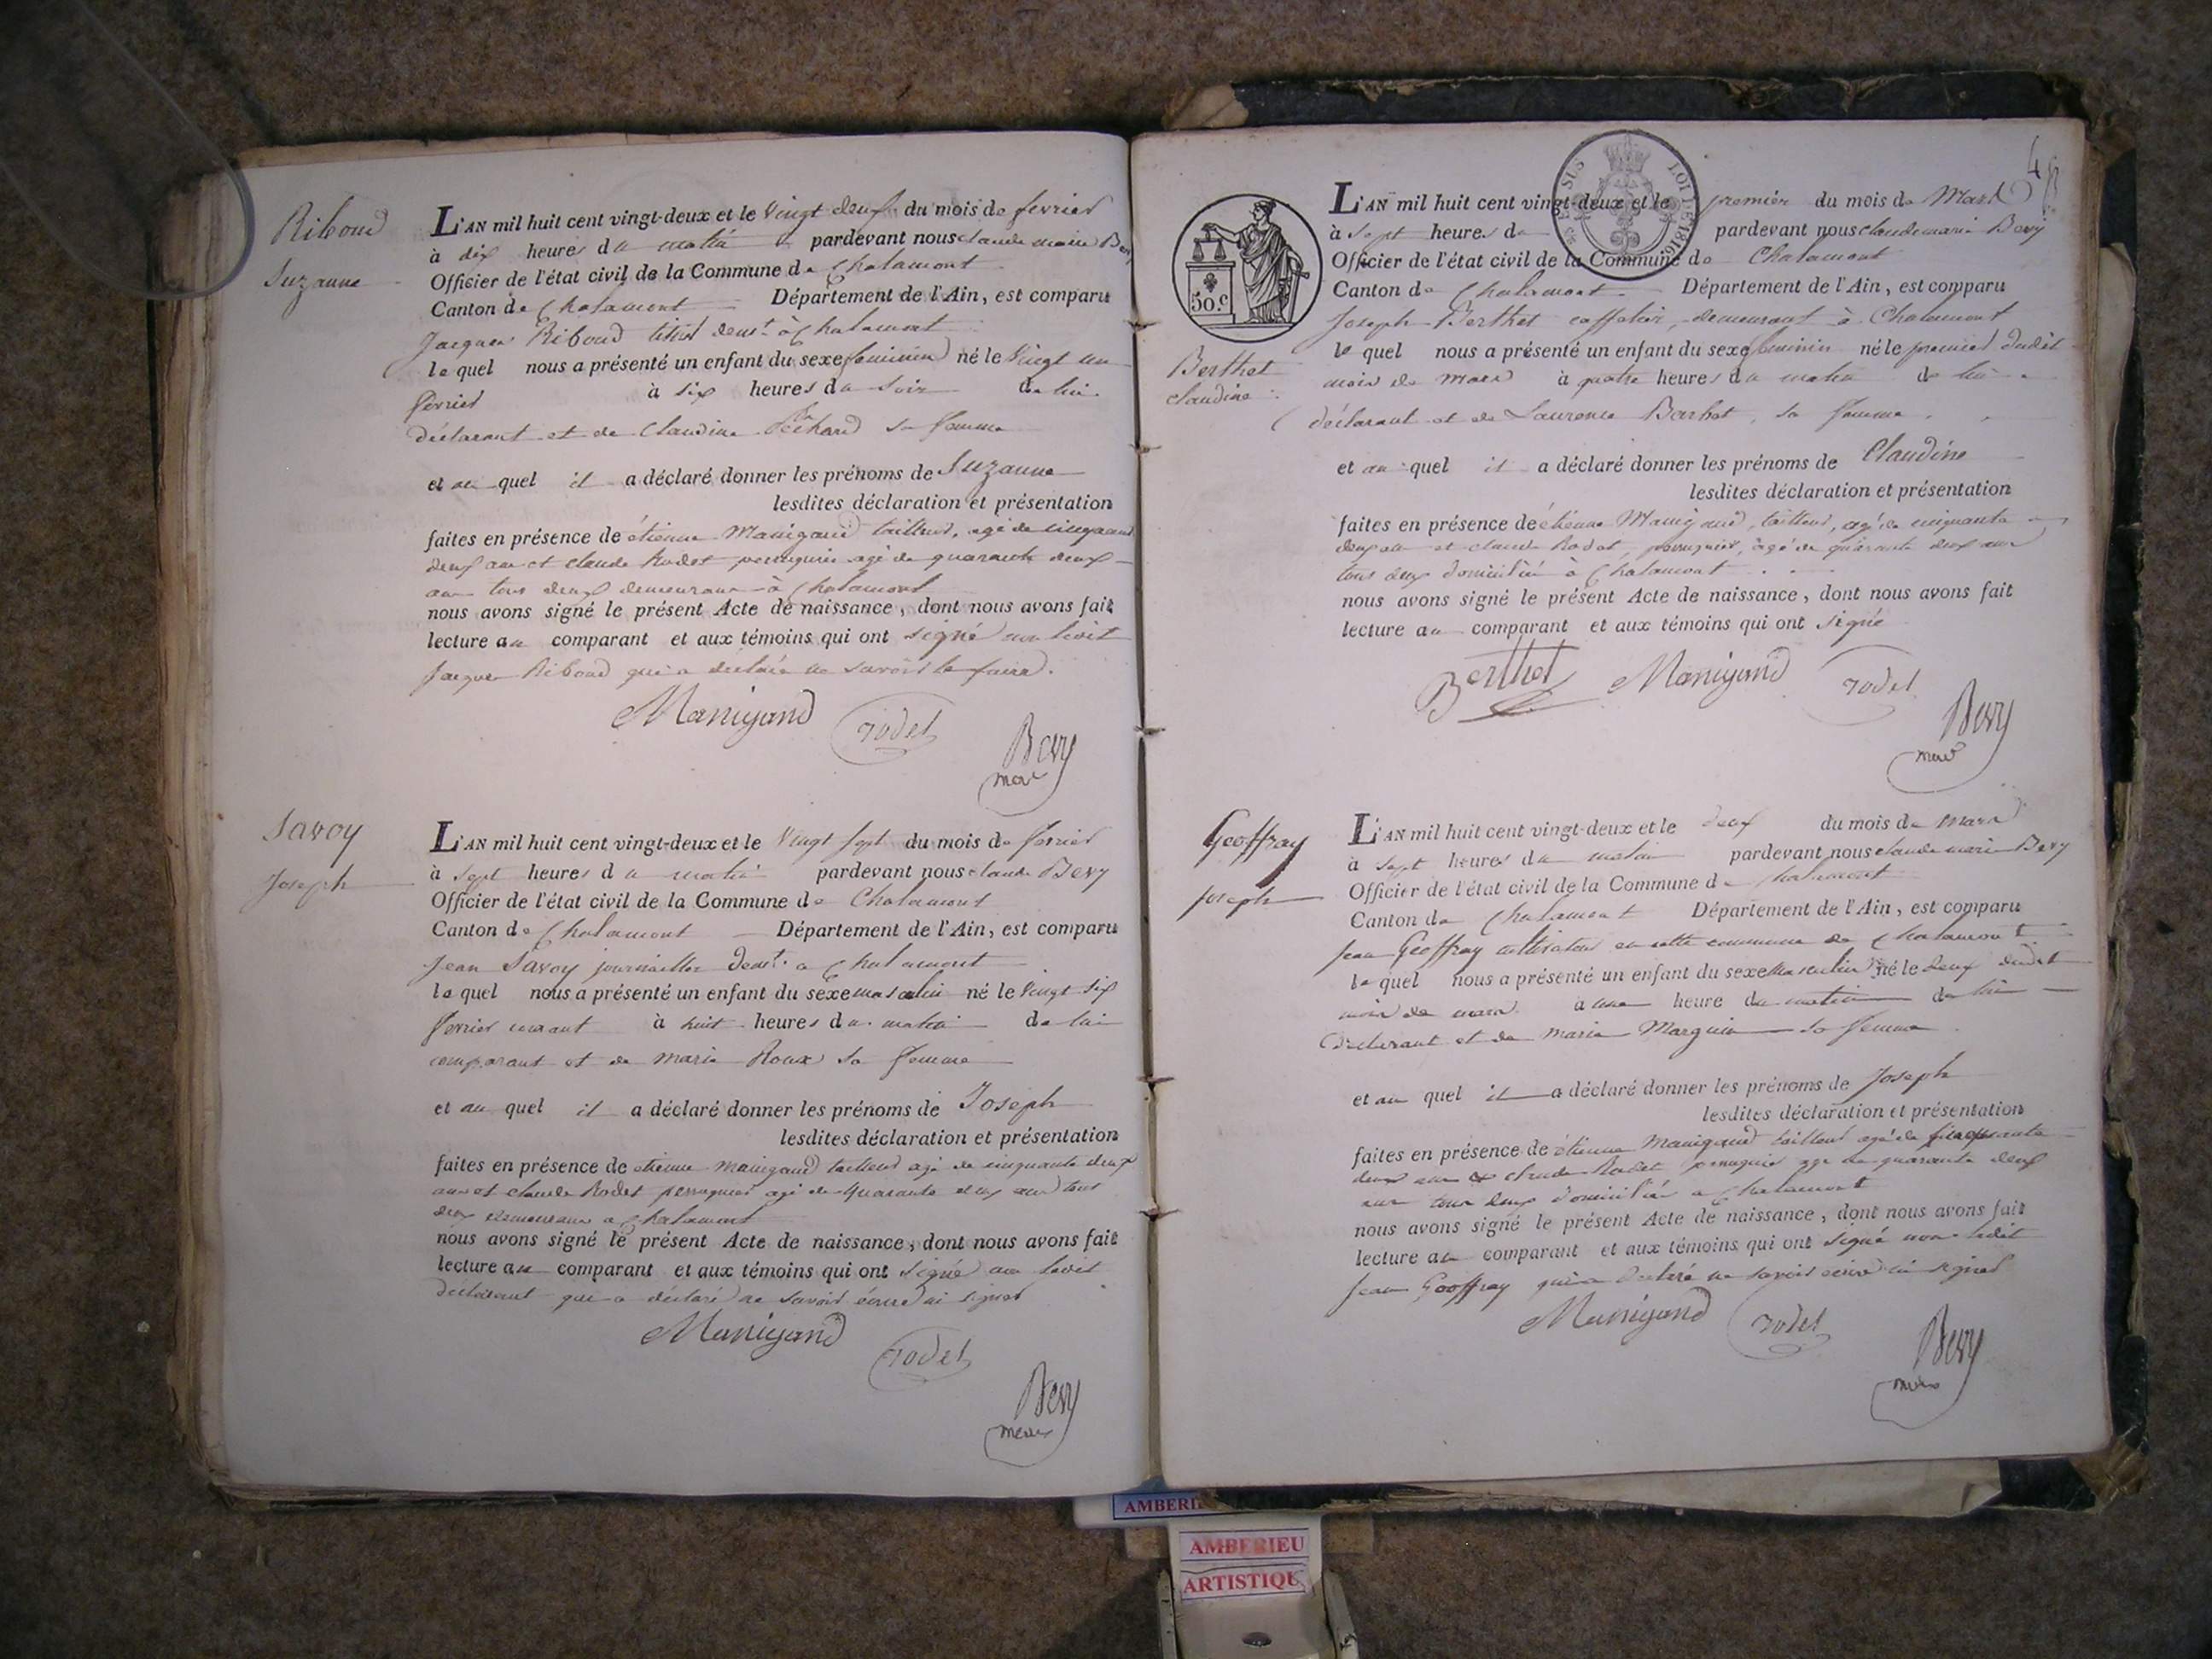 Riboud
Suzanne
L'AN mil huit cent vingt-deux et le Vingt deux du mois de fevrier
à dix heures du matin pardevant nous claude marie Bevy
Officier de l'état civil de la Commune de Chalamont
Canton de Chalamont Département de l'Ain, est comparu
Jacques Riboud demt à Chalamont
le quel nous a présenté un enfant du sexe feminin né le Vingt un
fevrier à six heures du soir de lui
déclarant et de Claudine sa femme
et au quel il a déclaré donner les prénoms de Suzanne
lesdites déclaration et présentation
faites en présence de étienne Manigand tailleur, agé de cinquante
deux ans et claude Rodet perruquier agé de quarante deux
ans tous deux demeurant à Chalamont
nous avons signé le présent Acte de naissance, dont nous avons fait
lecture au comparant et aux témoins qui ont signé non ledit
Jacques Riboud qui a déclaré ne savoir le faire.
Manigand Rodet
Bevy
maire
Savoy
Joseph
L'AN mil huit cent vingt-deux et le Vingt sept du mois de fevrier
à sept heures du matin pardevant nous claude Bevy
Officier de l'état civil de la Commune de Chalamont
Canton de Chalamont Département de l'Ain, est comparu
Jean Savoy journaillier demt. a Chalamont
le quel nous a présenté un enfant du sexe masculin né le Vingt six
fevrier courant à huit heures du matin de lui
comparant et de marie Roux sa femme
et au quel il a déclaré donner les prénoms de Joseph
lesdites déclaration et présentation
faites en présence de etienne manigand tailleur agé de cinquante deux
ans et claude Rodet perruquier agé de quarante deux ans tous
deux demeurant a Chalamont
nous avons signé le présent Acte de naissance, dont nous avons fait
lecture au comparant et aux témoins qui ont signé non ledit
déclarant qui a déclaré ne savoir écrire ni signer
Manigand Rodet
Bevy
maire
4
50.C
LOI DE 1816
L'AN mil huit cent vingt-deux et le premier du mois de Mars
à sept heures d pardevant nous claude marie Bevy
Officier de l'état civil de la Commune de Chalamont
Canton de Chalamont Département de l'Ain, est comparu
Joseph Berthet caffetier, demeurant à Chalamont
Berthet
claudine
le quel nous a présenté un enfant du sexe feminin né le premier dudit
mois de mars à quatre heures du matin de lui
déclarant et de Laurence Barbet, sa femme
et au quel il a déclaré donner les prénoms de Claudine
lesdites déclaration et présentation
faites en présence de étienne Manigand, tailleur, agé de cinquante
deux ans et claude Rodet, perruquier, agé de quarante deux ans
tous deux domiciliés à Chalamont
nous avons signé le présent Acte de naissance, dont nous avons fait
lecture au comparant et aux témoins qui ont signé
Berthet Manigand Rodet
Bevy
maire
Geoffray
joseph
L'AN mil huit cent vingt-deux et le deux du mois de mars
à sept heures du matin pardevant nous claude marie Bevy
Officier de l'état civil de la Commune de Chalamont
Canton de Chalamont Département de l'Ain, est comparu
Jean Geoffray cultivateur en cette commune de Chalamont
le quel nous a présenté un enfant du sexe masculin né le deux dudit
mois de mars à une heure du matin de lui
déclarant et de marie Marguin sa femme
et au quel il a déclaré donner les prénoms de Joseph
lesdites déclaration et présentation
faites en présence de étienne Manigand tailleur agé de cinquante
deux ans et claude Rodet perruquier agé de quarante deux
ans tous deux domiciliés a Chalamont
nous avons signé le présent Acte de naissance, dont nous avons fait
lecture au comparant et aux témoins qui ont signé non ledit
Jean Geoffray qui a déclaré ne savoir écrire ni signer
Manigand Rodet
Bevy
maire
AMBERIEU
ARTISTIQU